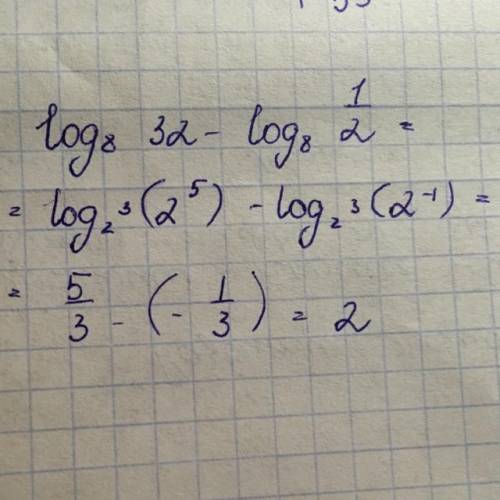 log₈ 32 - log₈ 1/2 =
= log₂³ (2⁵) - log₂³ (2⁻¹) =
= 5/3 - (- 1/3) = 2